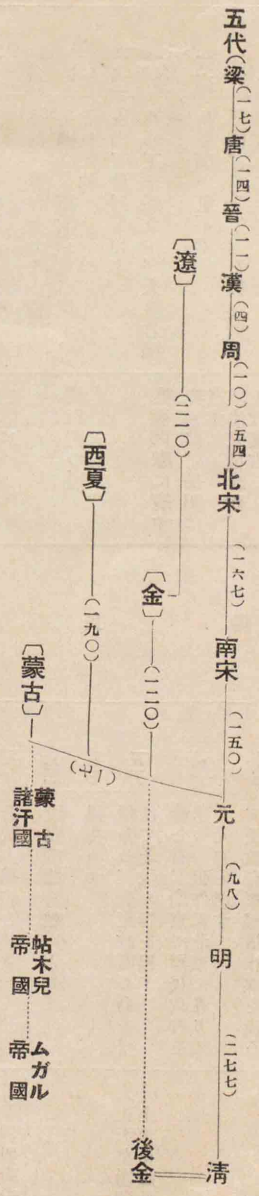 五代(梁(一七)唐(一四)晉(一一)漢(四)周(一〇)(五四)北宋(一六七)南宋(一五〇)元(九八)明(二七七)淸
〔遼〕(二一〇)
〔金〕(一二〇)後金
〔西夏〕(一九〇)
〔蒙古〕
蒙古
諸汗國
帖木兒
帝國
ムガル
帝國